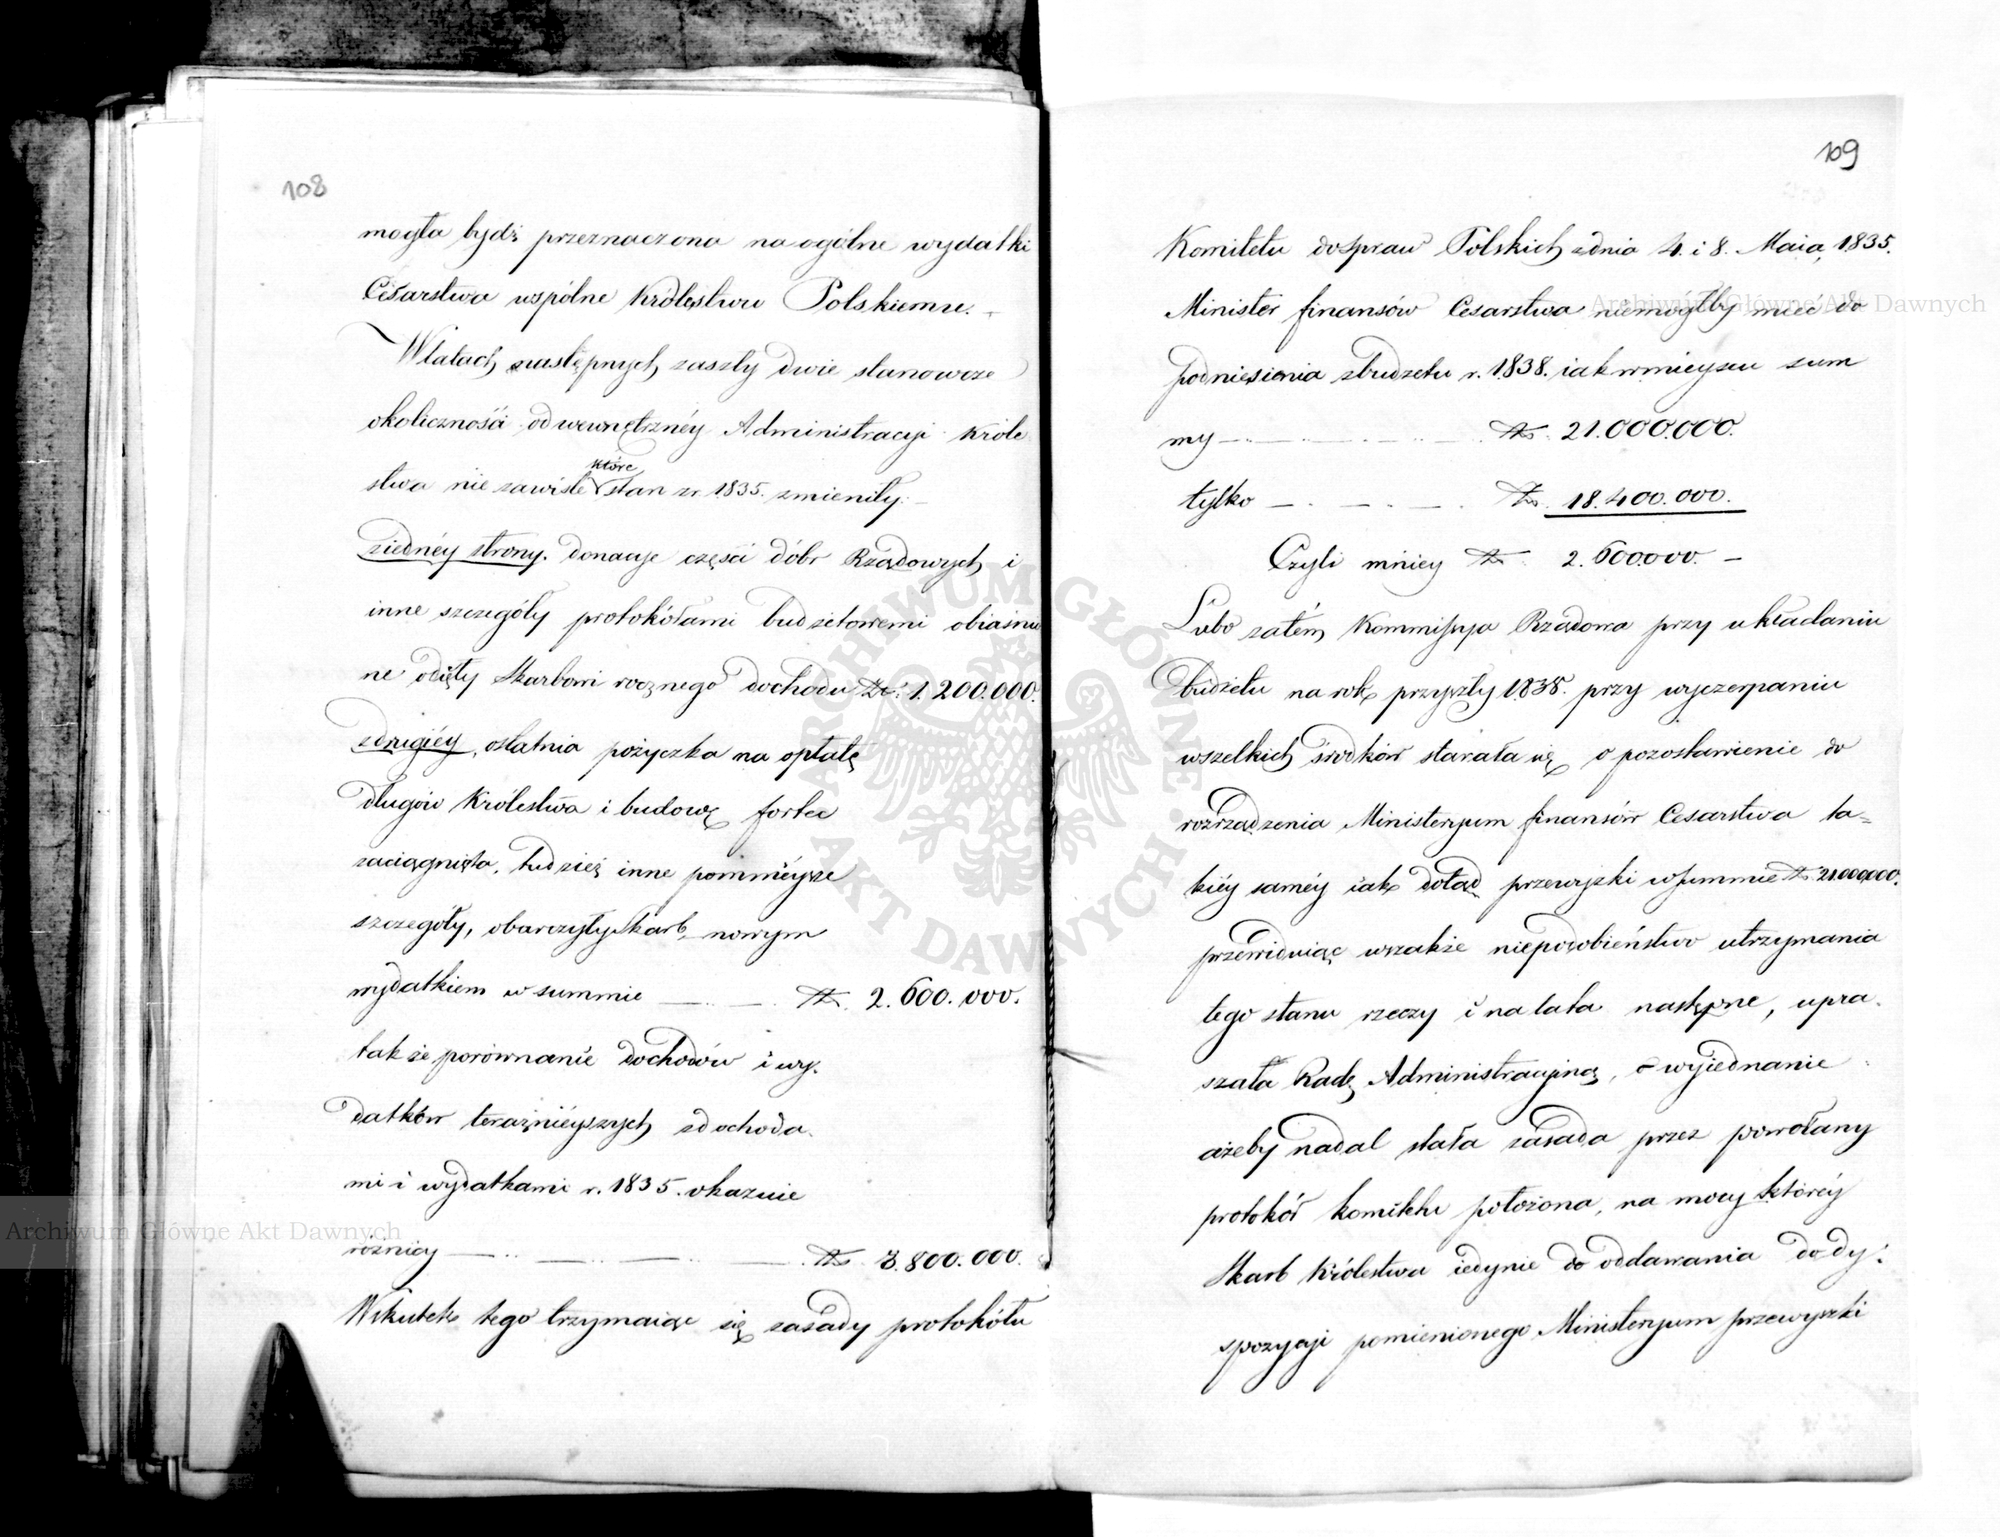 108
mogła bydź przeznaczona na ogólne wydatki
Cesarstwa wspólne Królestwu Polskiemu.
W latach następnych zaszły dwie stanowcze
okoliczności od wewnętrznéy Administracyi Króle
stwa nie zawisłe które stan z r. 1835. zmieniły.
z iednéy strony. donacye części dóbr Rządowych i
inne szczegóły protokółami budżetowemi obiaśnio
ne odięły Skarbowi rocznego dochodu Zł: 1.200.000.
z drugiéy, ostatnia pożyczka na opłatę
długów Królestwa i budowę fortec
zaciągnięta, tudzież inne pomnieysze
szczegóły, obarczyły Skarb nowym
wydatkiem w summie Zł. 2.600.000.
tak że porównanie dochodów i wy.
datków teraźnieyszych z docho­da.
mi i wydatkami r. 1835. okazuie
różnicy Zł. 3.800.000.
W skutek tego trzymaiąc się zasady protokółu
109
Komitetu do spraw Polskich z dnia 4. i 8. Maia, 1835.
Minister finansów Cesarstwa niemógłby mieć do
podniesienia z budżetu r. 1838. iak w mieyscu sum
my Zł. 21.000.000.
tylko Zł. 18.400.000.
Czyli mniey Zł. 2.600.000. –
Lubo zatém Kommissya Rządowa przy układaniu
budżetu na rok przyszły 1838. przy wyczerpaniu
wszelkich środków starała się o pozostawienie do
rozrządzenia Ministeryum finansów Cesarstwa ta=
kiéy saméy iak dotąd przewyżki w summie Zł. 21.000.000.
przewiduiąc wszakże niepodobieństwo utrzymania
tego stanu rzeczy i na lata następne, upra.
szała Radę Administracyjną, o wyiednanie
ażeby nadal stała zasada przez powołany
protokół komitetu położona, na mocy któréy
Skarb Królestwa iedynie do oddawania do dy.
spozycyi pomienionego Ministeryum przewyżki
ARCHIWUM GŁÓWNE AKT DAWNYCH
Archiwum Główne Akt Dawnych
Archiwum Główne Akt Dawnych